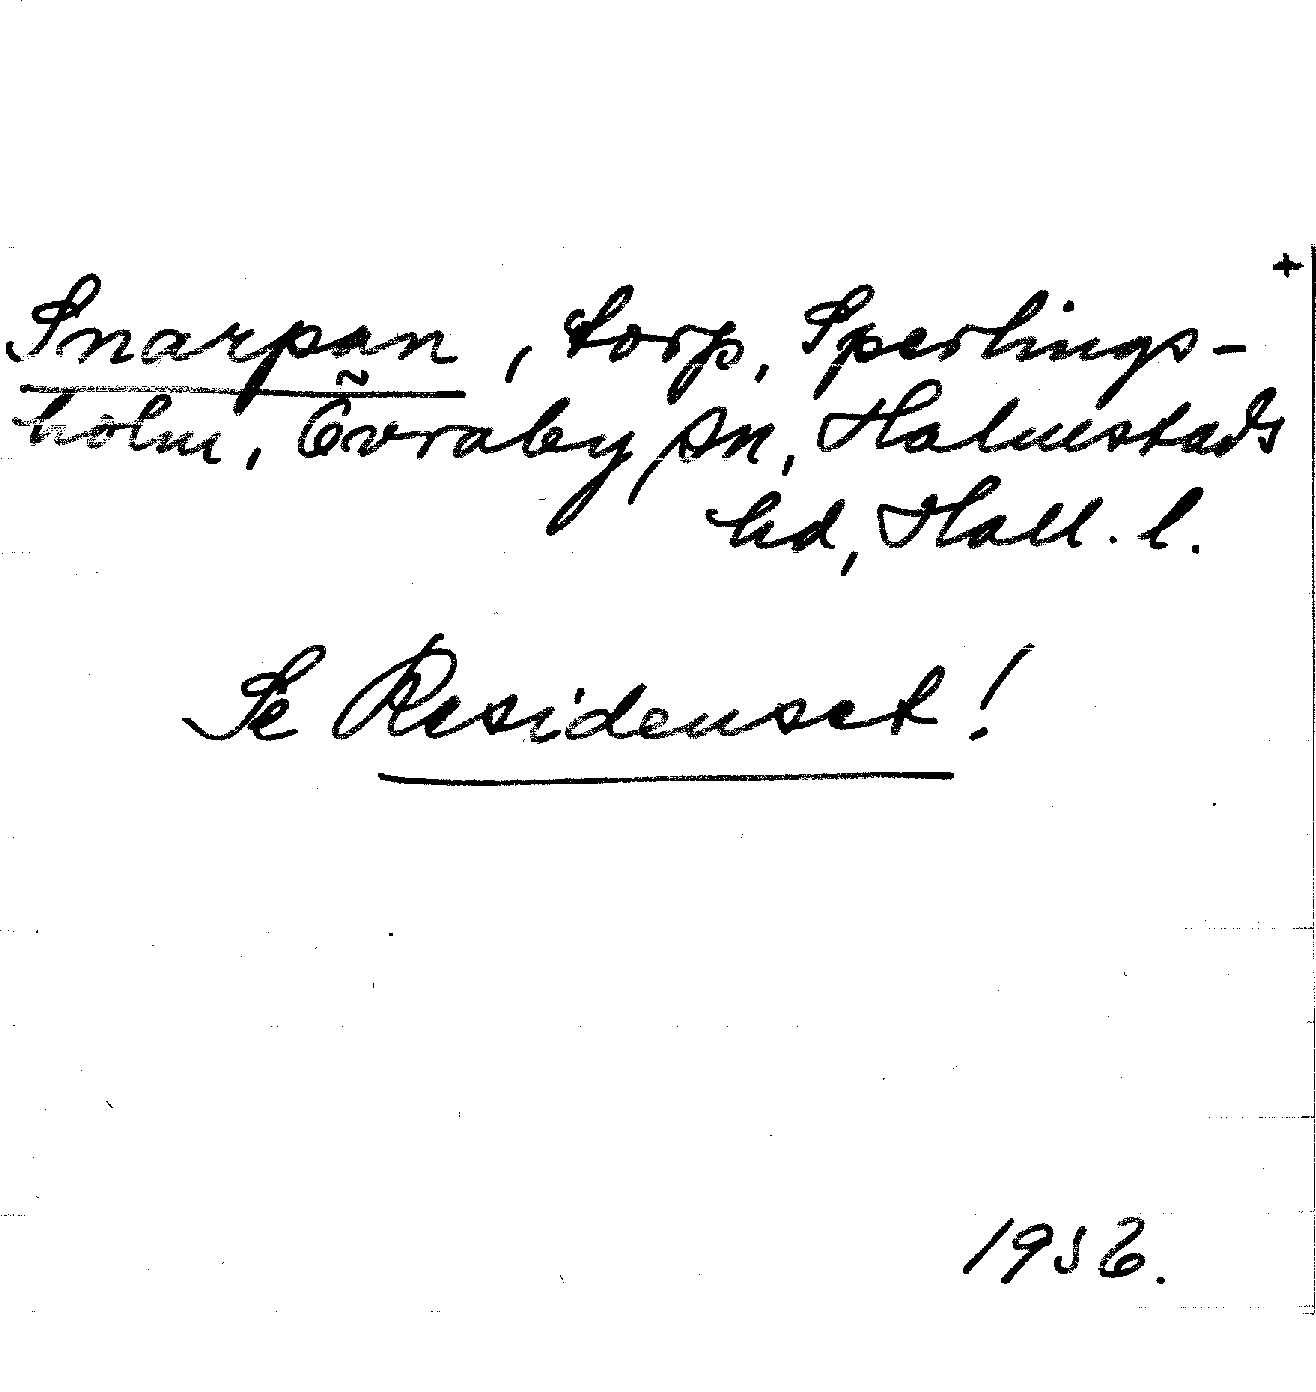 +
Snarpan, torp, Sperlings-
holm, Övraby sn, Halmstads
hd, Hall. l.
Se Residenset!
1956.